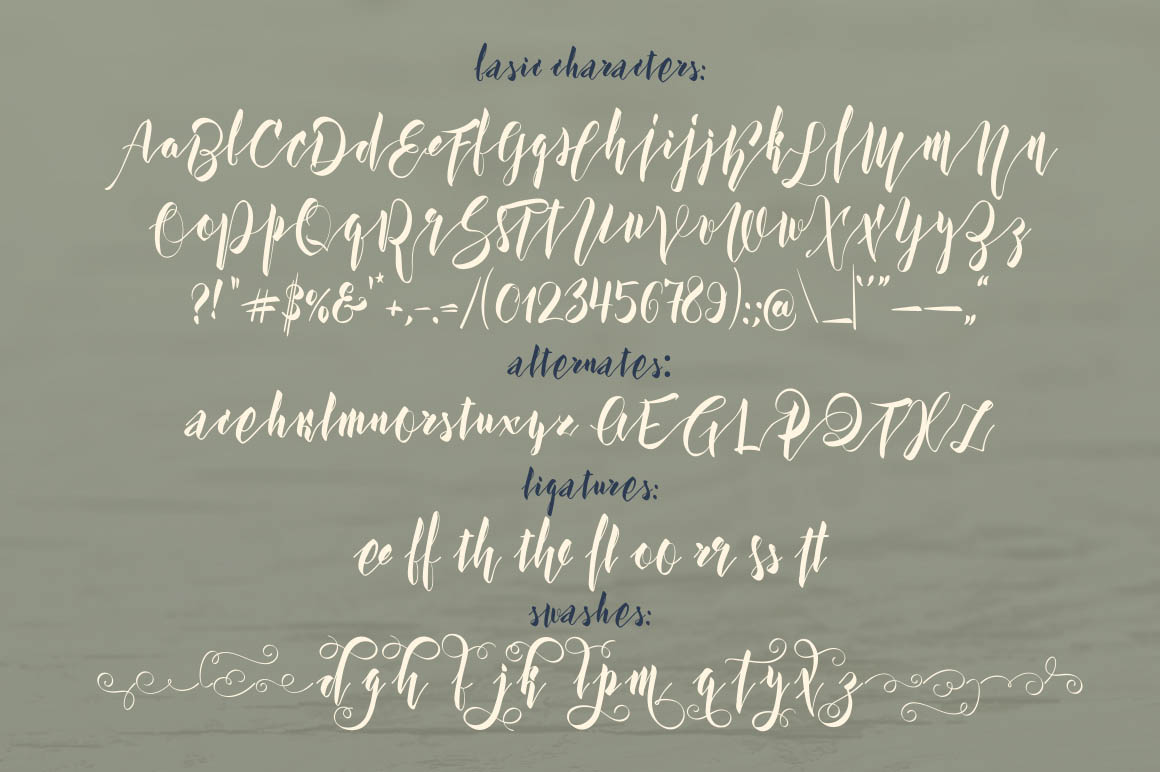 basic characters:
AaBbCcDdEeFfGgHhIiJjKkLlMmNn
OoPpQqRrSsTtUuVvWwXxYyZz
?!"#$%&'*+,-.=/(0123456789):;@\_|‘’”—–„“
alternates:
acehklmnorstuxyz AEGLPQTXZ
ligatures:
ee ff th the fl oo rr ss tt
swashes:
dghfjklpm qtyxz